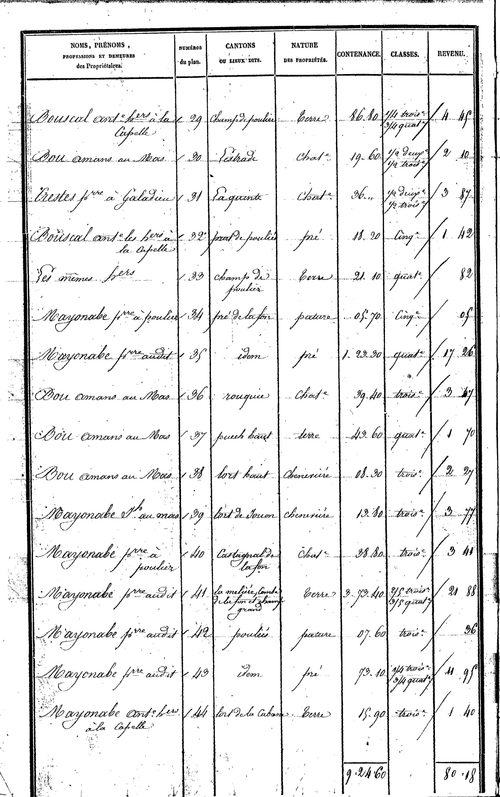 NOMS, PRÉNOMS, PROFESSIONS ET DEMEURES des Propriétaires. | NUMÉROS du plan. | CANTONS OU LIEUX DITS. | NATURE DES PROPRIÉTÉS. | CONTENANCE. | CLASSES. | REVENU.
Bouscal ant.e h.ers à la Capelle | 29 | Champ de pouliés | terre | 86.80 | 1/4 trois.e 3/4 quat.e | 4 45
Bou amans au Mas | 30 | l'estrade | Chat.e | 19.60 | 1/2 deux.e 1/2 trois.e | 2 10
Crestes p.rre à Galadieu | 31 | la quinte | Chat.e | 36.,, | 1/2 deux.e 1/2 trois.e | 3 87
Bouscal ant.e les h.ers à la Capelle | 32 | prat de pouliés | pré | 18.20 | Cinq.e | 1 42
Les mêmes h.ers | 33 | champ de poulies | terre | 21.10 | quat.e | 82
Mayonabe p.rre à poulies | 34 | pré de la fon | pature | 05.70 | Cinq.e | 05
Mayonabe p.rre audit | 35 | idem | pré | 1.23.30 | quat.e | 17 26
Bou amans au Mas | 36 | rouquie | Chat.e | 39.40 | trois.e | 3
Bou amans au Mas | 37 | puech haut | terre | 43.60 | quat.e | 1 70
Bou amans au Mas | 38 | lort haut | Cheneviére | 08.30 | trois.e | 2 27
Mayonabe au mas | 39 | lort de | cheneviére | 13.80 | trois.e | 3 77
Mayonabe p.rre à poulies | 40 | Castagnal de la fon | Chat.e | 38.80 | trois.e | 3 41
Mayonabe p.rre audit | 41 | de la fon et champ grand | terre | 3.73.40 | 2/5 trois.e 3/5 quat.e | 21 88
Mayonabe p.rre audit | 42 | pouliés | pature | 07.60 | trois.e | 36
Mayonabe p.rre audit | 43 | idem | pré | 73.10 | 1/4 trois.e 3/4 quat.e | 11 95
Mayonabe ant.e h.ers à la Capelle | 44 | lort de la Cabane | terre | 15.90 | trois.e | 1 40
9.24.60 | 80.18